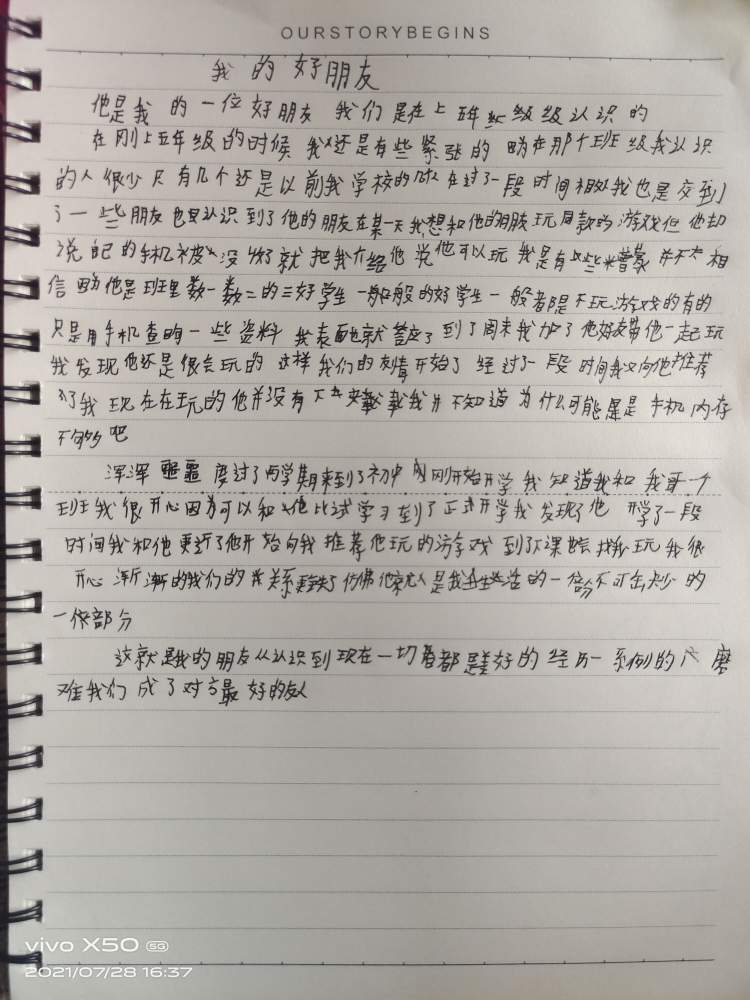 OURSTORYBEGINS
我的好朋友
他是我的一位好朋友 我们是在上五年级认识的
在刚上五年级的时候 我还是有些紧张的 因为在那个班级我认识
的人很少只有几个还是以前我学校的 在过了一段时间相处我也是交到
了一些朋友也认识到了他的朋友在某一天我想和他的朋友玩同款的游戏但他却
说自己的手机被没收了就把我介绍他说他可以玩 我是有些懵 并不太相
信因为他是班里数一数二的三好学生一般的好学生一般都是不玩游戏的有的
只是用手机查询一些资料 我表面也就答应了到了周末我加了他好友带他一起玩
我发现他还是很会玩的 这样我们的友情开始了 经过了一段时间我又向他推荐
了我现在在玩的他并没有下载我并不知道为什么可能是手机内存
不够吧
浑浑噩噩度过了两学期来到了初中刚开始开学我知道我和我哥一个
班我很开心因为可以和他比试学习到了正式开学我发现了他 开学了一段
时间我和他更近了他开始向我推荐他玩的游戏 到了下课也会找我玩我很
开心 渐渐的我们的关系 仿佛他就是我生活的一份不可缺少的
一部分
这就是我的朋友从认识到现在一切看都是美好的经历一系例的磨
难我们成了对方最好的
vivo X50 5G
2021/07/28 16:37